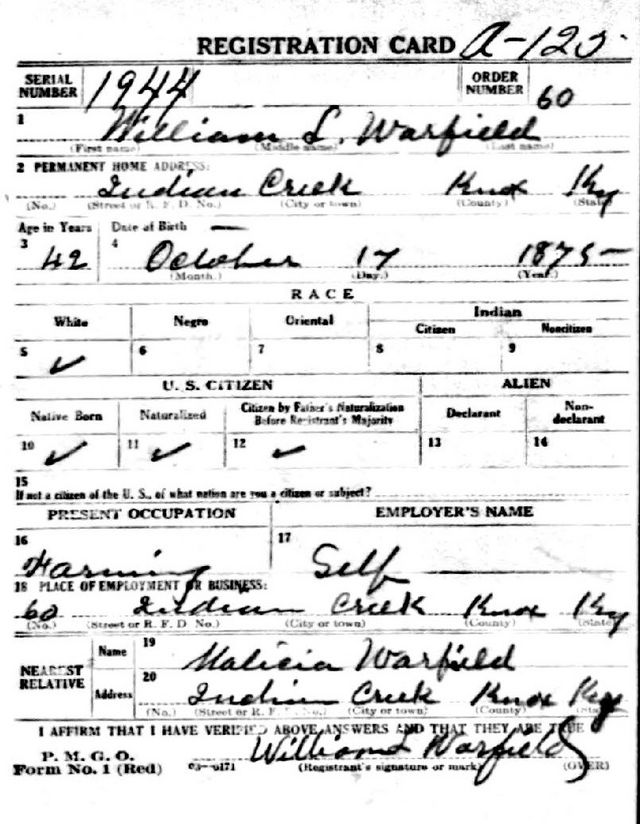 REGISTRATION CARD A-125
SERIAL NUMBER 1944 ORDER NUMBER 60
1 William L. Warfield
(First name) (Middle name) (Last name)
2 PERMANENT HOME ADDRESS:
Indian Creek Knox Ky
(No.) (Street or R. F. D. No.) (City or town) (County) (State)
Age in Years Date of Birth —
3 42 4 October 17 1875
(Month.) (Day.) (Year.)
RACE
White Negro Oriental Indian
Citizen Noncitizen
5 ✓ 6 7 8 9
U. S. CITIZEN ALIEN
Native Born Naturalized Citizen by Father's Naturalization Before Registrant's Majority Declarant Non-declarant
10 ✓ 11 ✓ 12 ✓ 13 14
15
If not a citizen of the U. S., of what nation are you a citizen or subject?
PRESENT OCCUPATION EMPLOYER'S NAME
16 Farming 17 Self
18 PLACE OF EMPLOYMENT OR BUSINESS:
60 Indian Creek Knox Ky
(No.) (Street or R. F. D. No.) (City or town) (County) (State)
NEAREST RELATIVE Name 19 Malicia Warfield
Address 20 Indian Creek Knox Ky
(No.) (Street or R. F. D. No.) (City or town) (County) (State)
I AFFIRM THAT I HAVE VERIFIED ABOVE ANSWERS AND THAT THEY ARE TRUE
P. M. G. O.
Form No. 1 (Red) 03-6171 William L Warfield
(Registrant's signature or mark) (OVER)